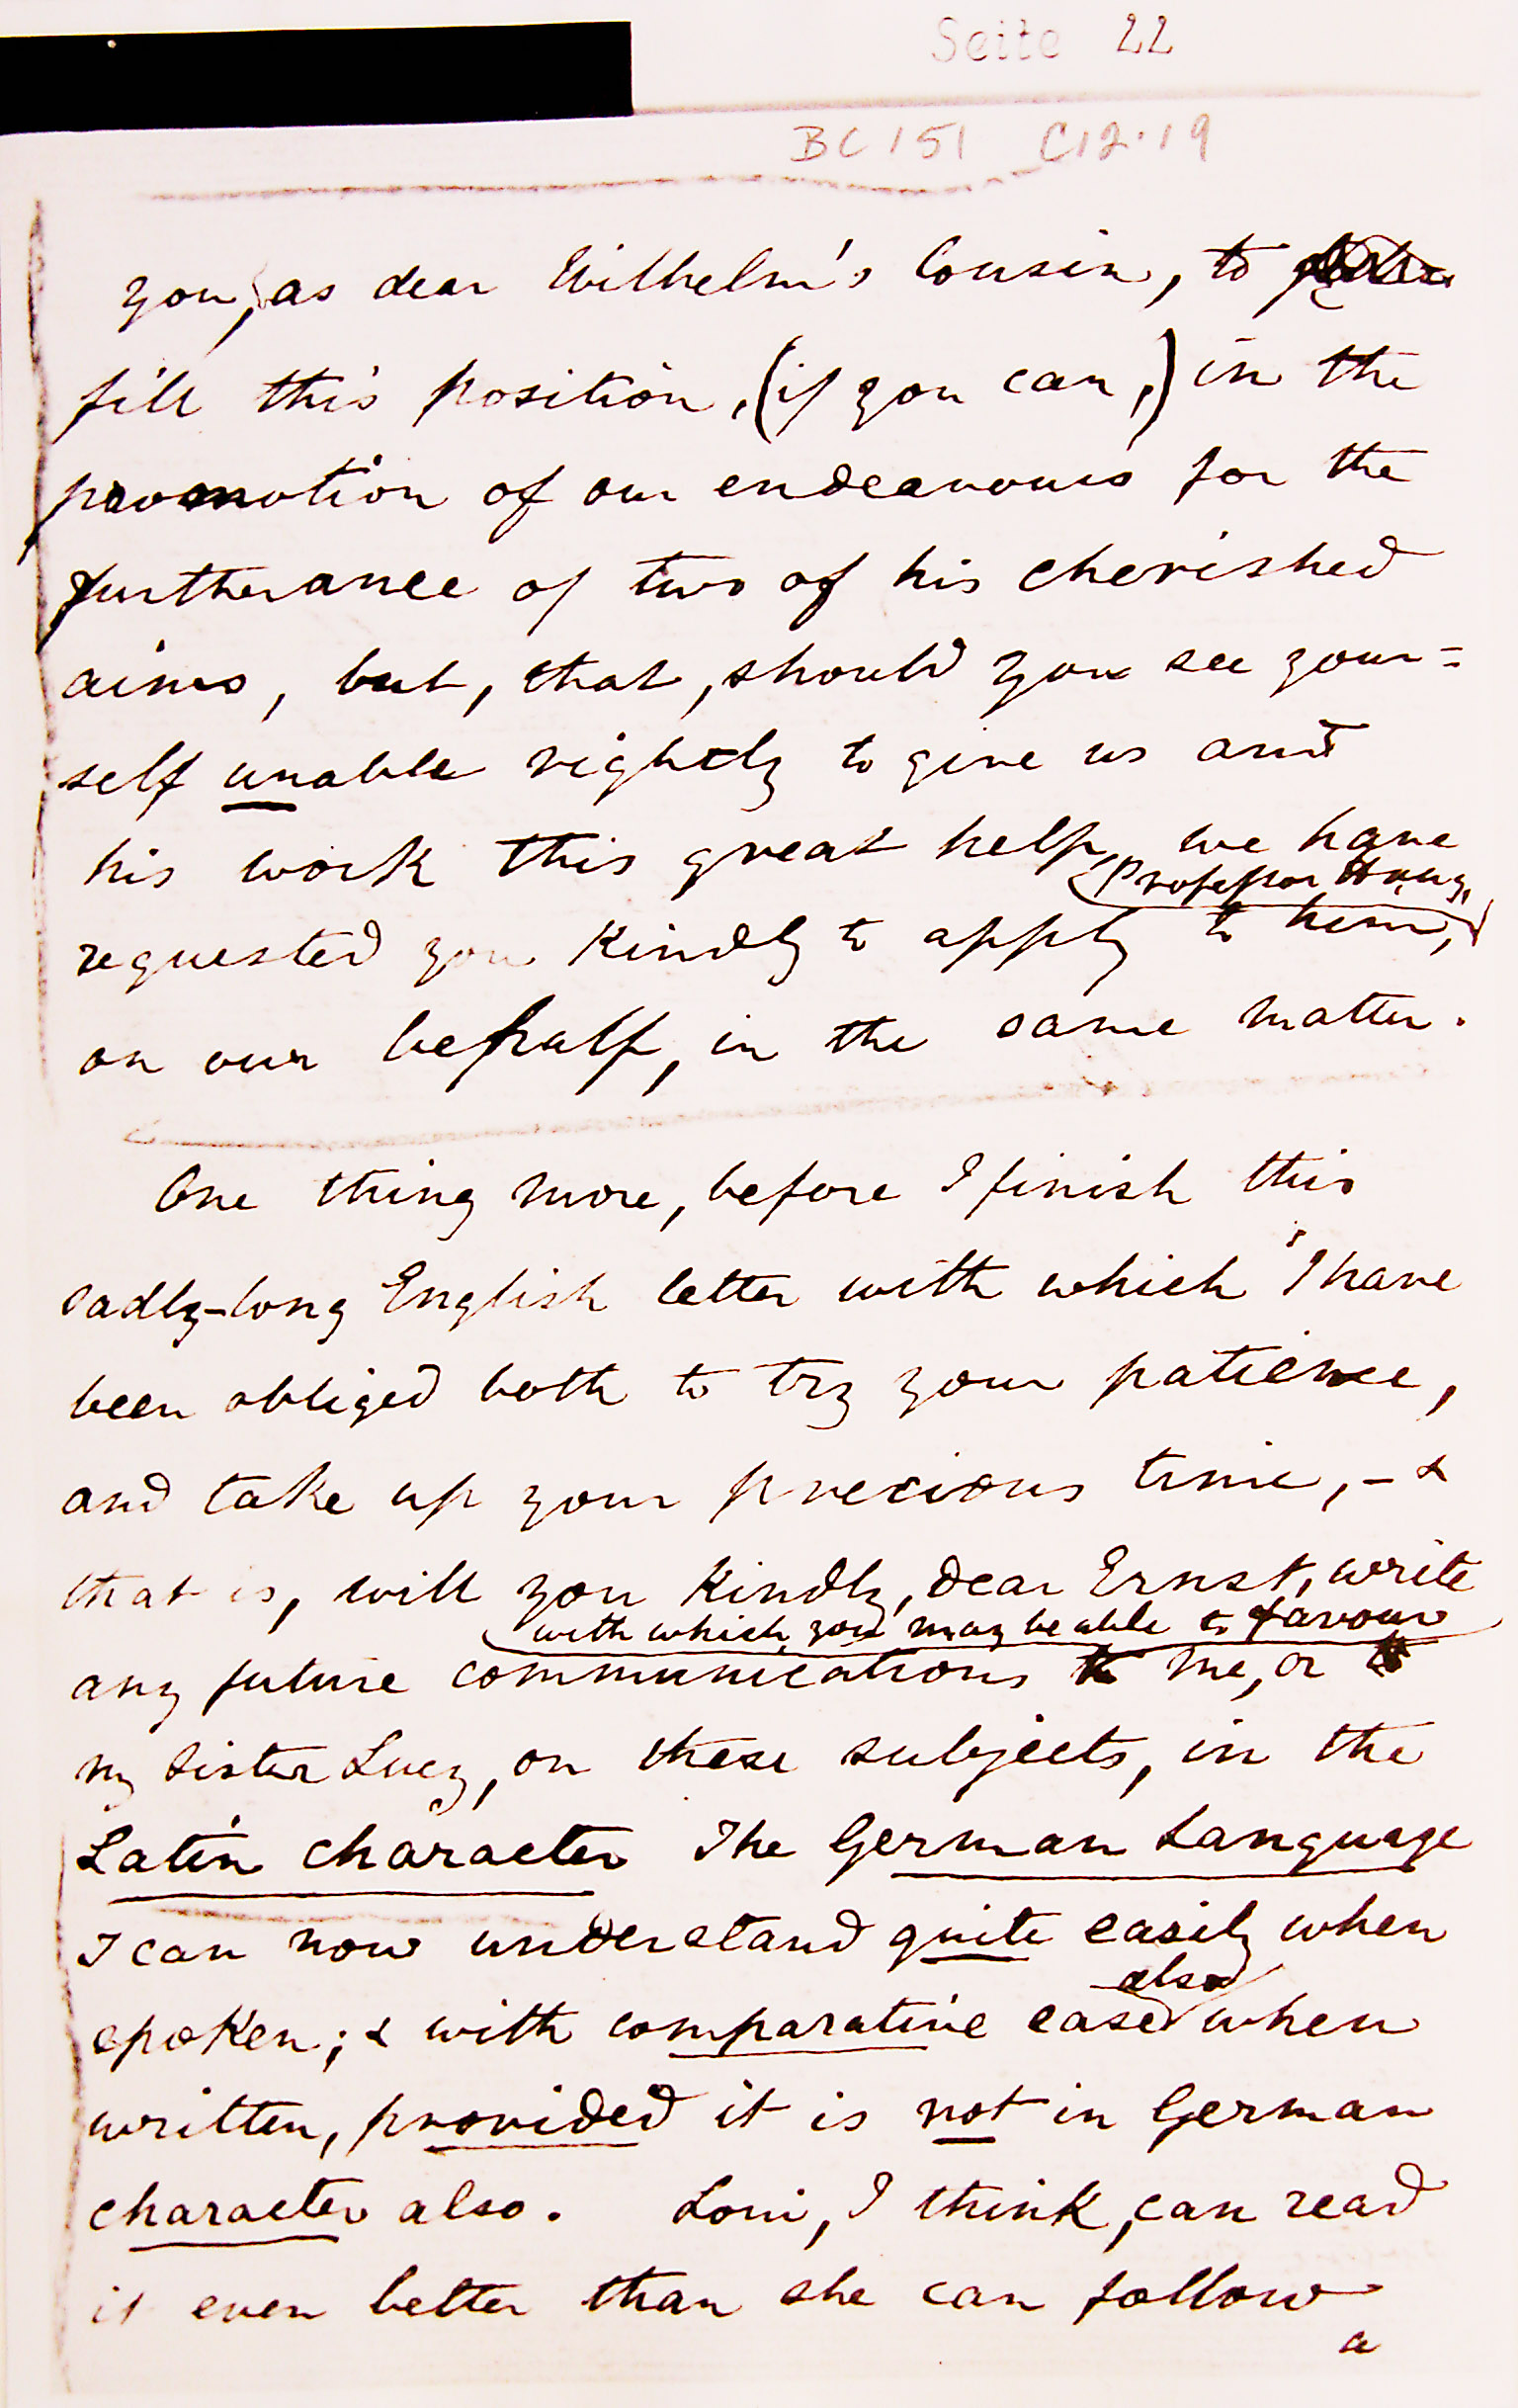 Seite 22
BC 151 C12.19
you, as dear Wilhelm's Cousin, to
fill this position, (if you can,) in the
promotion of our endeavours for the
furtherance of two of his cherished
aims, but, that, should you see your=
self unable rightly to give us and
his work this great help, we have
Professor
requested you Kindly to apply to him,
on our behalf, in the same matter.
One thing more, before I finish this
sadly-long English letter with which I have
been obliged both to try your patience,
and take up your precious time, – &
that is, will you Kindly, dear Ernst, write
with which you may be able to favour
any future communications me, or
my Sister Lucy, on these subjects, in the
Latin character The German Language
I can now understand quite easily when
also
spoken; & with comparative ease when
written, provided it is not in German
character also. Loui, I think, can read
it even better than she can follow
a